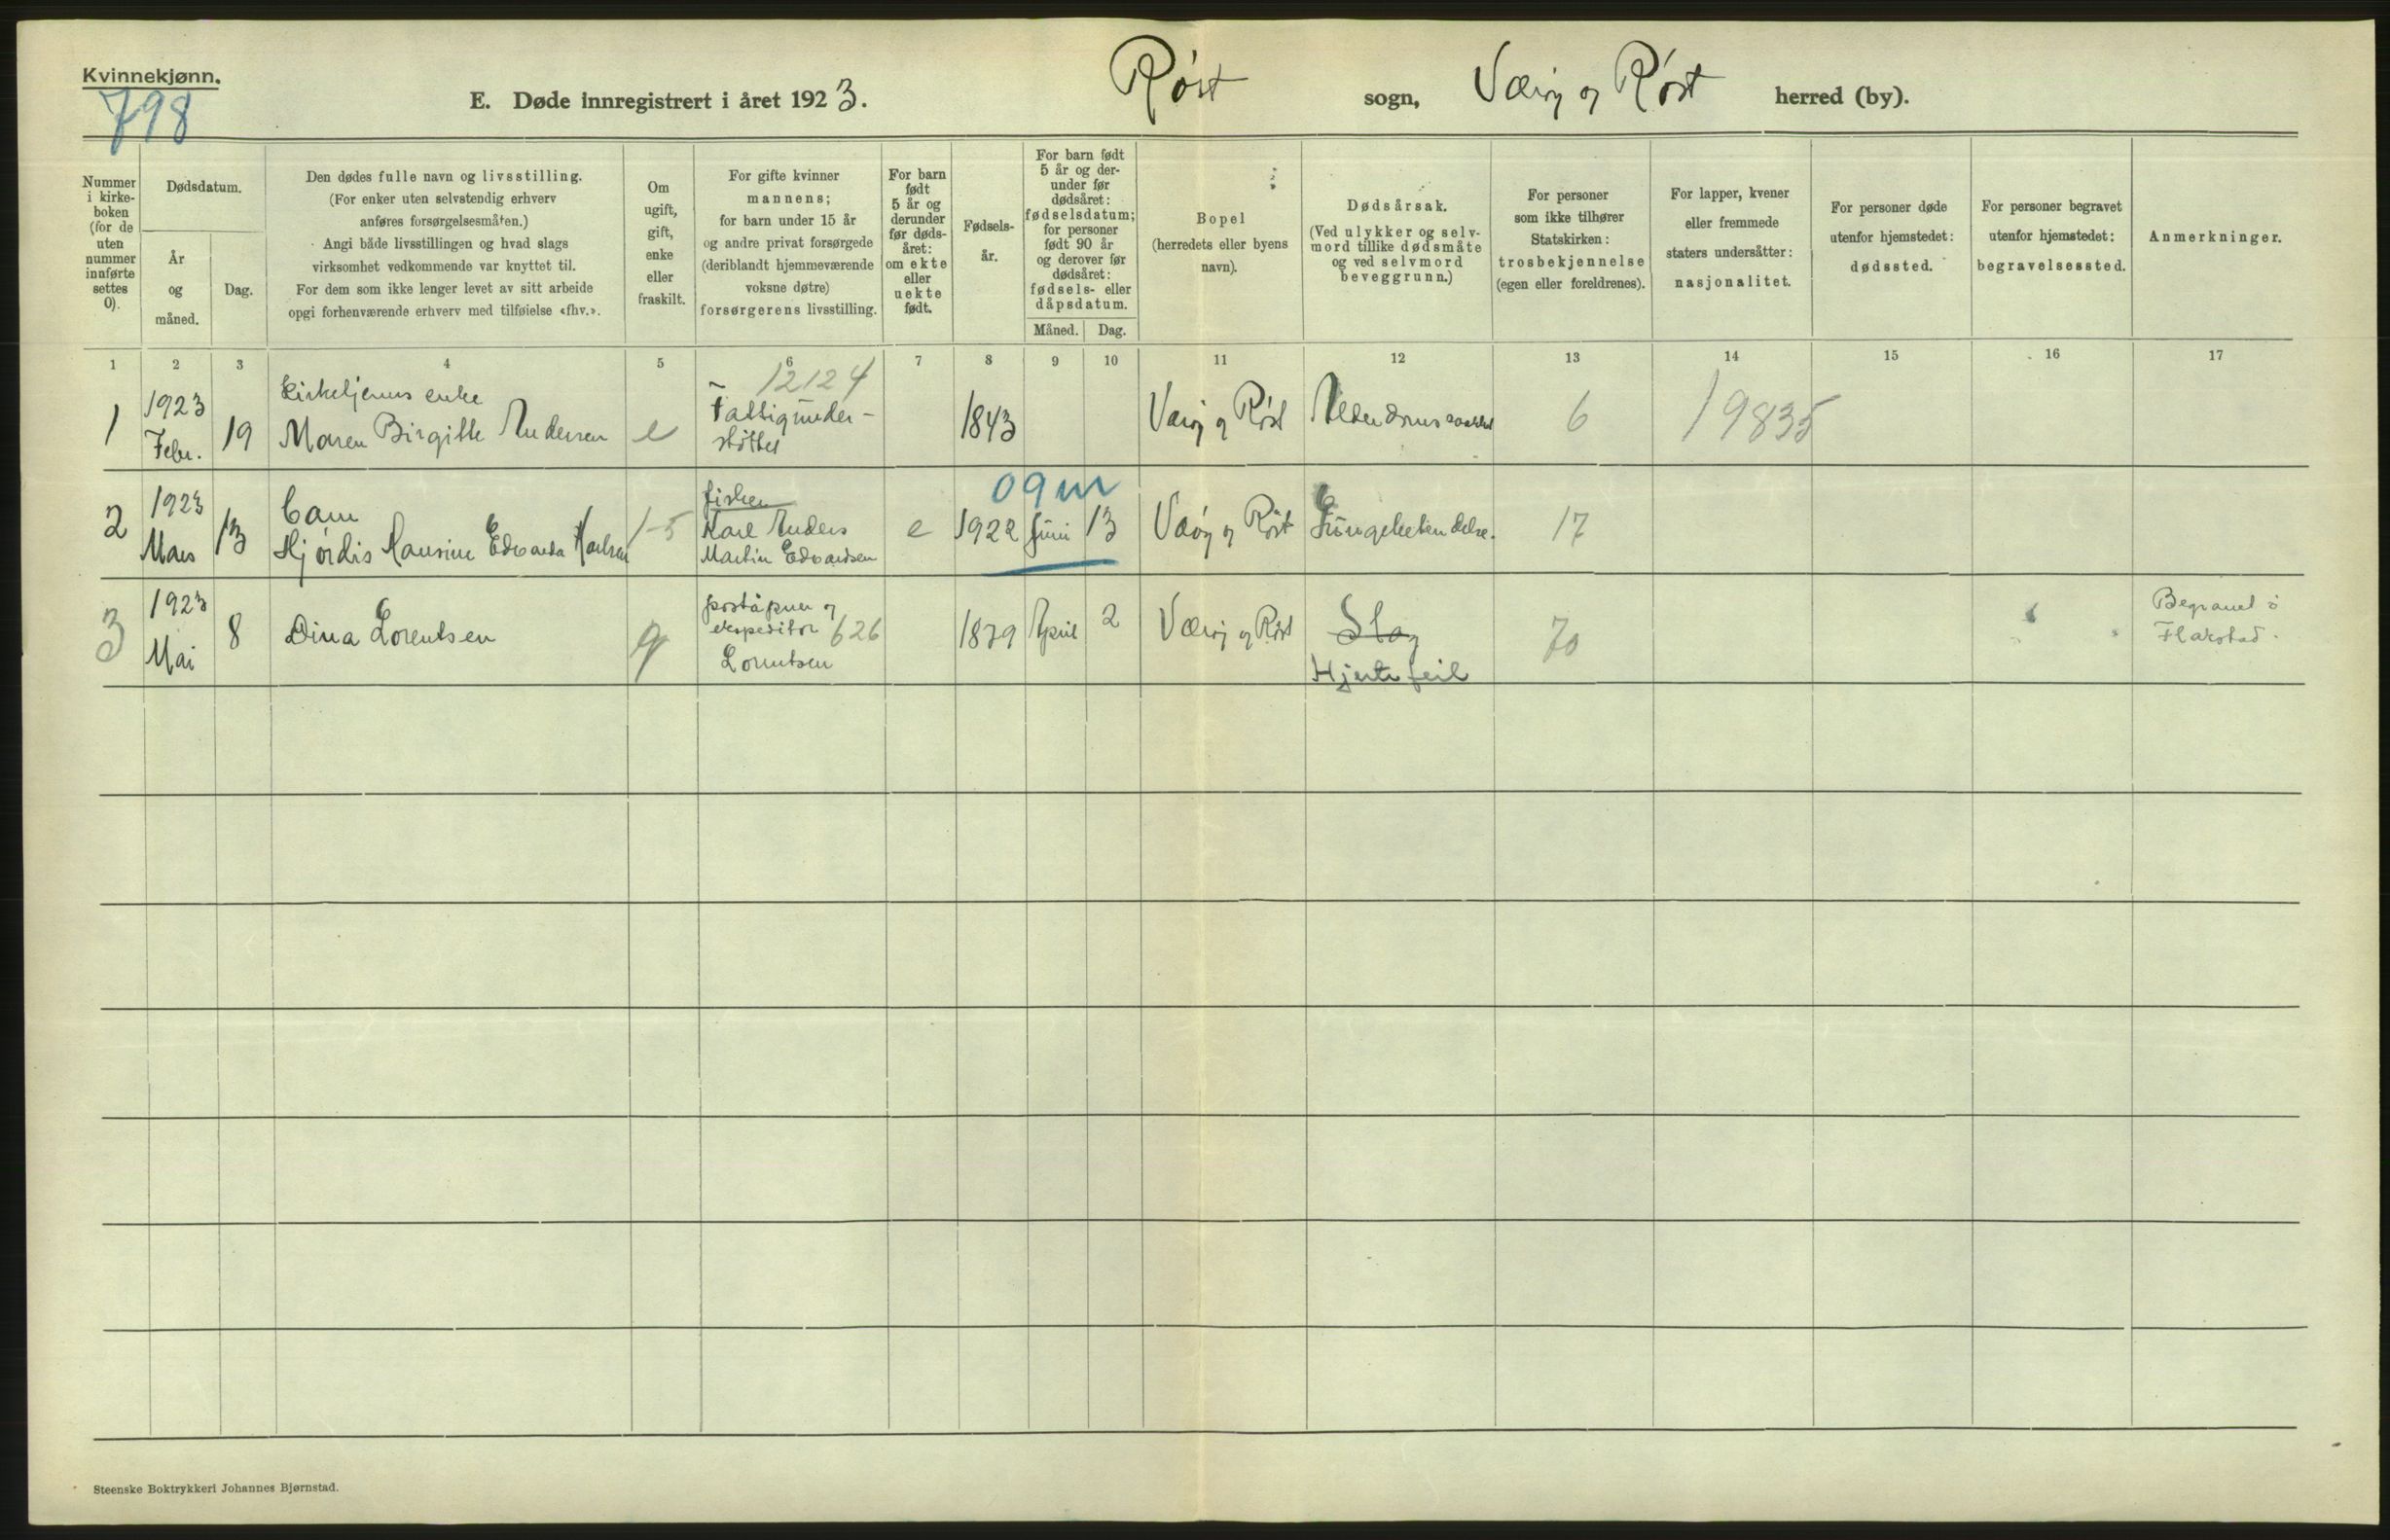 Kvinnekjønn.
798
E. Døde innregistrert i året 1923.
Røst sogn, Værøy og Røst herred (by).
Nummer i kirke-boken (for de uten nummer innførte settes 0).
Dødsdatum.
År og måned.
Dag.
Den dødes fulle navn og livsstilling.
(For enker uten selvstendig erhverv
anføres forsørgelsesmåten.)
Angi både livsstillingen og hvad slags
virksomhet vedkommende var knyttet til.
For dem som ikke lenger levet av sitt arbeide
opgi forhenværende erhverv med tilføielse «fhv.».
Om
ugift,
gift,
enke
eller
fraskilt.
For gifte kvinner
mannens;
for barn under 15 år
og andre privat forsørgede
(deriblandt hjemmeværende
voksne døtre)
forsørgerens livsstilling.
For barn
født
5 år og
derunder
før døds-
året:
om ekte
eller
uekte
født.
Fødsels-
år.
For barn født
5 år og der-
under før
dødsåret:
fødselsdatum;
for personer
født 90 år
og derover før
dødsåret:
fødsels- eller
dåpsdatum.
Måned. Dag.
Bopel
(herredets eller byens
navn).
Dødsårsak.
(Ved ulykker og selv-
mord tillike dødsmåte
og ved selvmord
beveggrunn.)
For personer
som ikke tilhører
Statskirken:
trosbekjennelse
(egen eller foreldrenes).
For lapper, kvener
eller fremmede
staters undersåtter:
nasjonalitet.
For personer døde
utenfor hjemstedet:
dødssted.
For personer begravet
utenfor hjemstedet:
begravelsessted.
Anmerkninger.
1 2 3 4 5 6 7 8 9 10 11 12 13 14 15 16 17
1
1923
Febr.
19
enke
Maren Birgitte Andersen
e
12124
Fattigunder-
støttet
1843
Værøy og Røst
6
19835
2
1923
Mars
13
barn
Hjørdis Edvarda Karlsen
1-5
fisker
Karl Anders
Martin Edvardsen
e
09m
1922
Juni
13
Værøy og Røst
Lungebetendelse.
17
3
1923
Mai
8
Dina Lorentsen
g
poståpner og
ekspeditør 626
Lorentsen
1879
April
2
Værøy og Røst
Slag
Hjertefeil
70
Begravet i
Flakstad.
Steenske Boktrykkeri Johannes Bjørnstad.